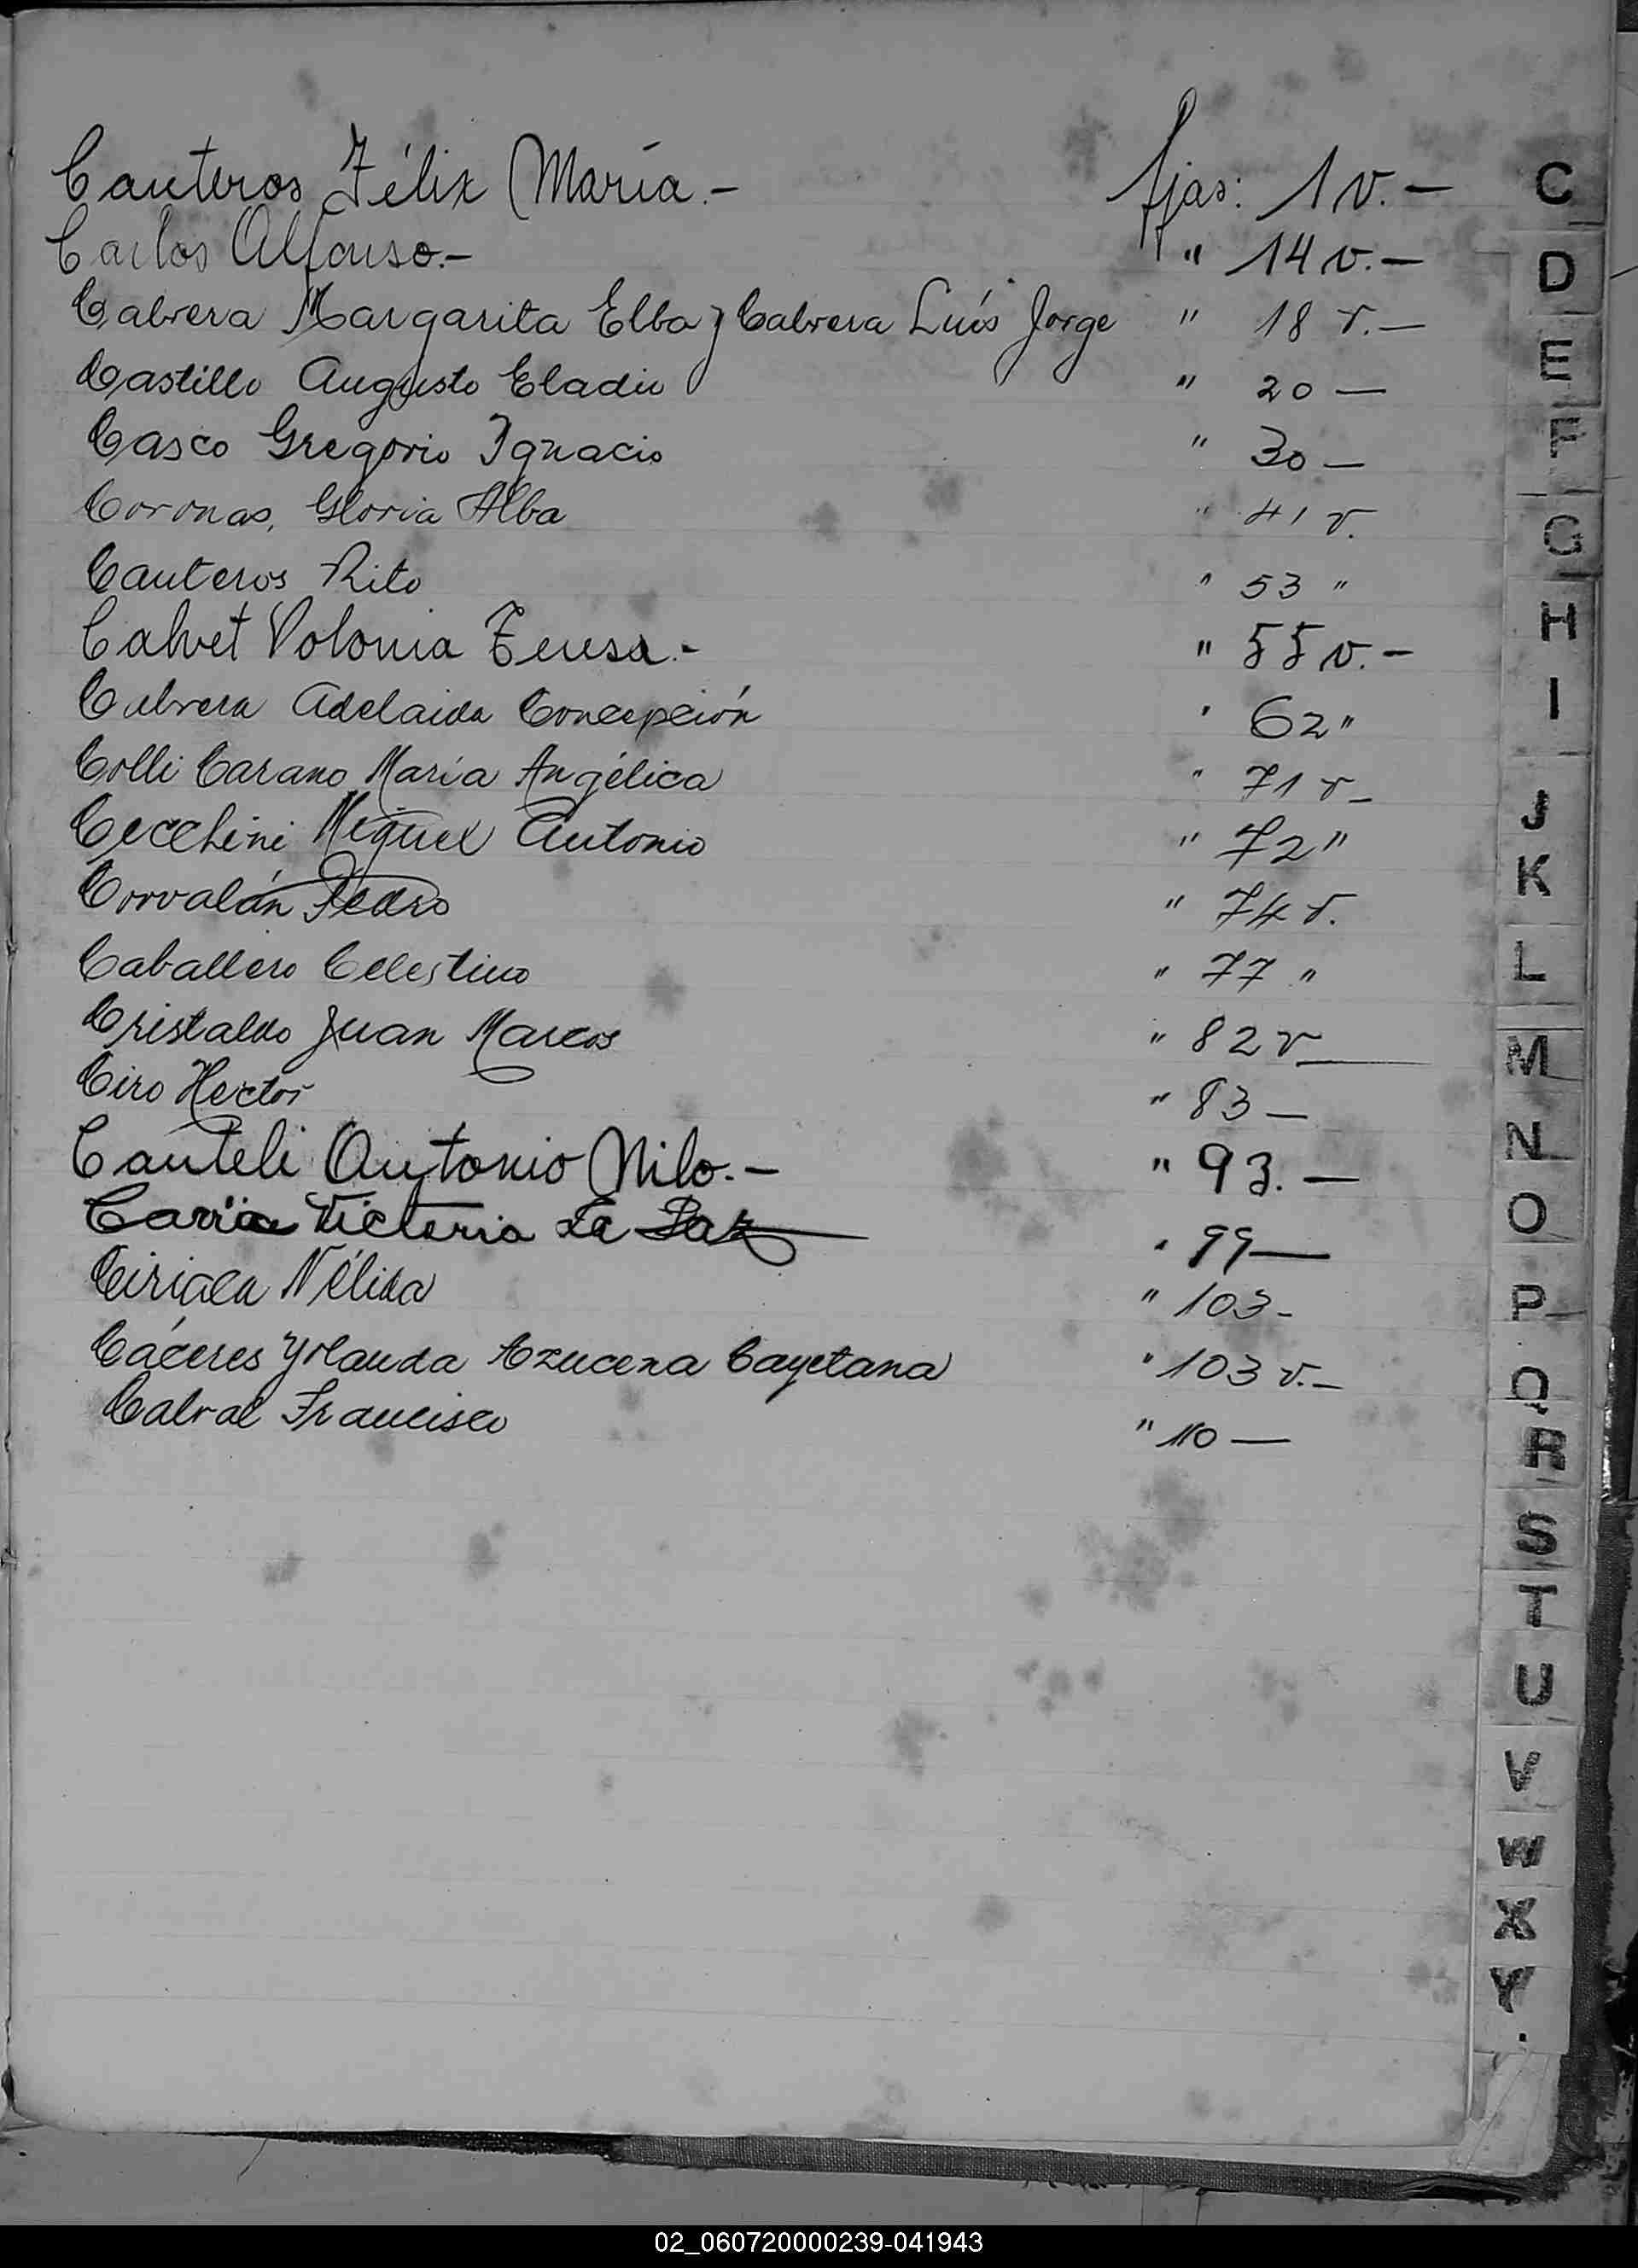 Canteros Félix María.- fjas: 1 v.-
Carlos Alfonso.- " 14 v.-
Cabrera Margarita Elba y Cabrera Luís Jorge " 18 v.-
Castillo Augusto Eladio " 20 —
Casco Gregorio Ignacio " 30 —
Coronas, Gloria Alba " 41 v.
Canteros Rito " 53 "
Calvet Polonia Teresa.- " 55 v.-
Cabrera Adelaida Concepción " 62 "
Colli Carano María Angélica " 71 v -
Cecchini Miguel Antonio " 72 "
Corvalán Pedro " 74 v.
Caballero Celestino " 77 "
Cristaldo Juan Marcos " 82 v —
Ciro Hector " 83 —
Canteli Antonio Nilo.- " 93.—
Victoria La Paz " 99 —
Nélida " 103 -
Cáceres Yolanda Azucena Cayetana " 103 v.-
Cabral Francisco " 110 —
C
D
E
F
G
H
I
J
K
L
M
N
O
P
Q
R
S
T
U
V
W
X
Y
02_060720000239-041943